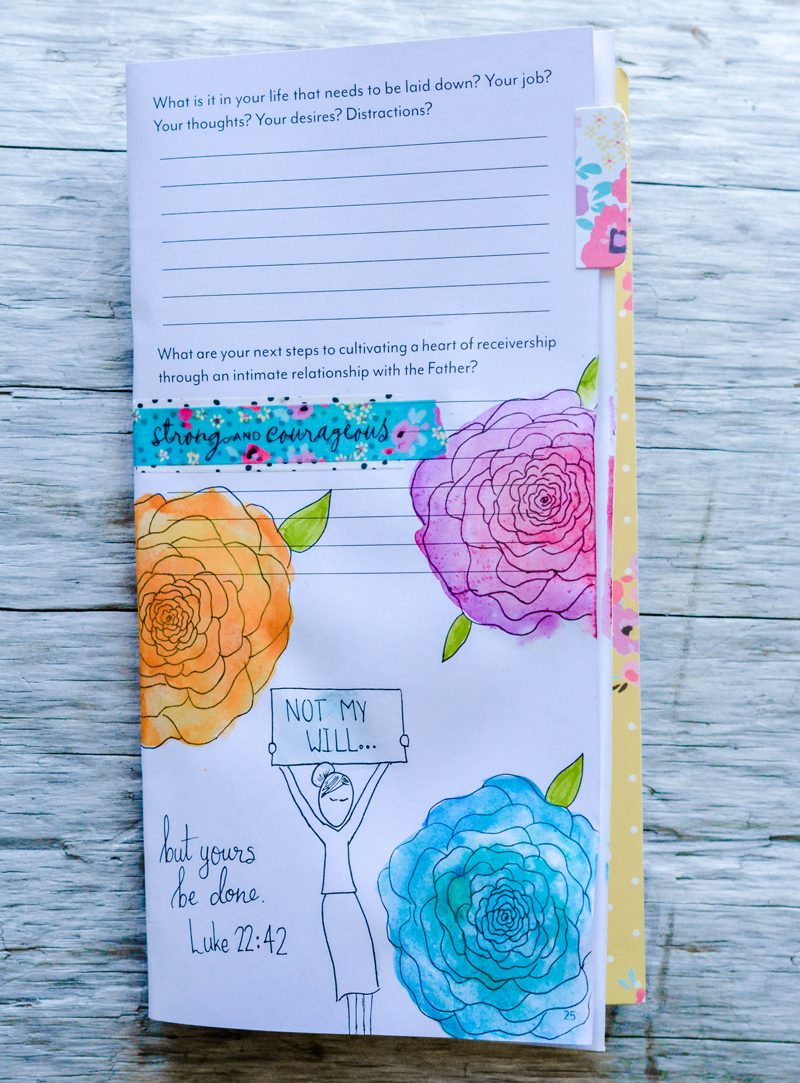 What is it in your life that needs to be laid down? Your job?
Your thoughts? Your desires? Distractions?
What are your next steps to cultivating a heart of receivership
through an intimate relationship with the Father?
strong AND courageous
NOT MY
WILL...
but yours
be done.
Luke 22:42
25